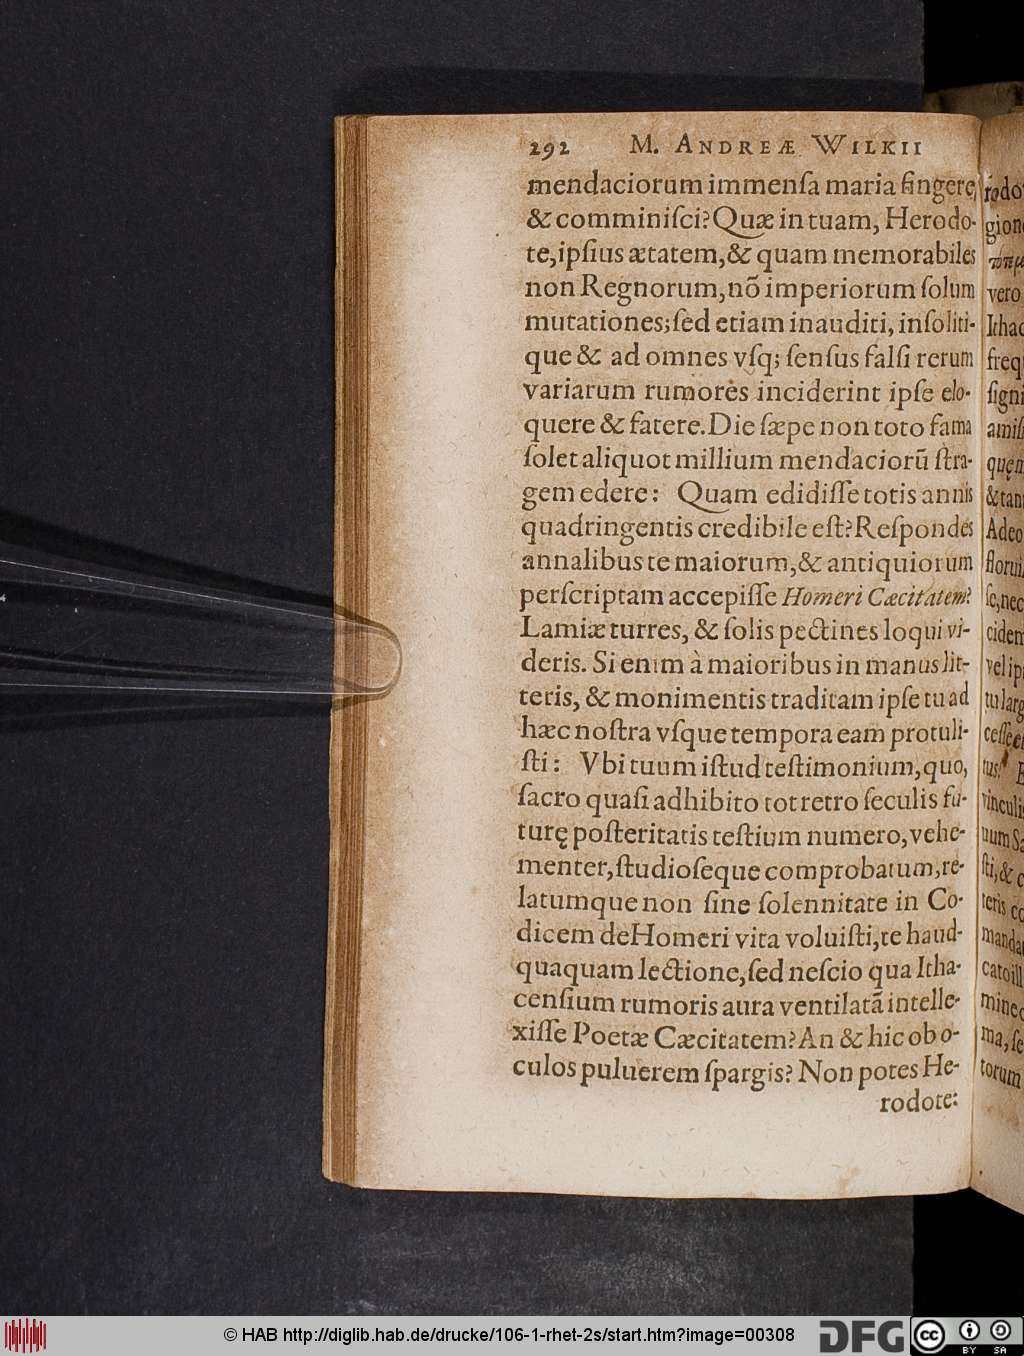 292 M. ANDREÆ WILKII
mendaciorum immenſa maria fingere,
& comminiſci? Quæ in tuam, Herodo-
te, ipſius ætatem, & quam memorabiles
non Regnorum, nō imperiorum ſolum
mutationes; ſed etiam inauditi, inſoliti-
que & ad omnes vſq; ſenſus falſi rerum
variarum rumores inciderint ipſe elo-
quere & fatere. Die ſæpe non toto fama
ſolet aliquot millium mendaciorū ſtra-
gem edere: Quam edidiſſe totis annis
quadringentis credibile eſt? Reſpondes
annalibus te maiorum, & antiquiorum
perſcriptam accepiſſe Homeri Cæcitatem?
Lamiæ turres, & ſolis pectines loqui vi-
deris. Si enim à maioribus in manus lit-
teris, & monimentis traditam ipſe tu ad
hæc noſtra vſque tempora eam protuli-
ſti: Vbi tuum iſtud teſtimonium, quo,
ſacro quaſi adhibito tot retro ſeculis fu-
turę poſteritatis teſtium numero, vehe-
menter, ſtudioſeque comprobatum, re-
latumque non ſine ſolennitate in Co-
dicem de Homeri vita voluiſti, te haud-
quaquam lectione, ſed neſcio qua Itha-
cenſium rumoris aura ventilatā intelle-
xiſſe Poetæ Cæcitatem? An & hic ob o-
culos puluerem ſpargis? Non potes He-
rodote:
rodo
gion
vero
Ithac
freq
ſigni
amiſ
quęn
& tan
Adeo
floruiſ
ſe, nec
ciden
vel ip
tu larg
ceſſe
tus?
vinculis
num Sa
ſti, & c
teris co
manda
cato ill
mine c
ma, ſe
torum
© HAB http://diglib.hab.de/drucke/106-1-rhet-2s/start.htm?image=00308
DFG
cc BY SA